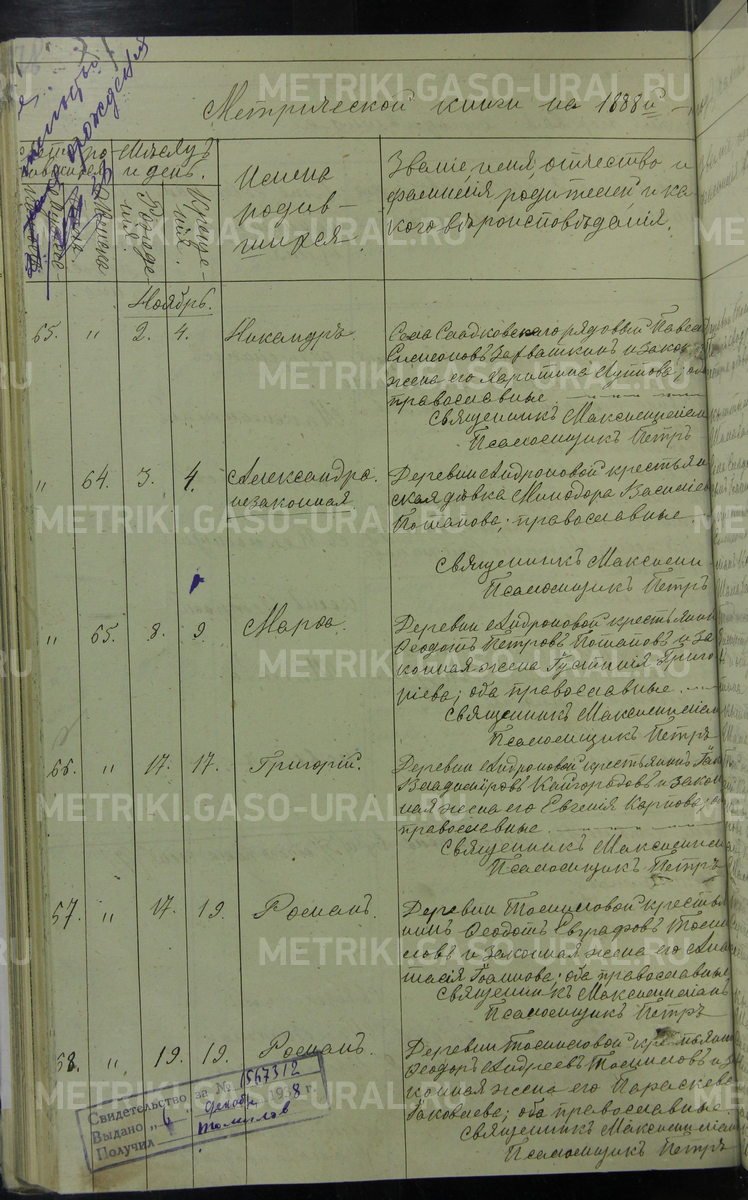 METRIKI.GASO-URAL.RU
Метрической книги на 1888й
Мѣсяцъ
и день.
Рожде-
нія.
Креще-
нія.
Имена
родив-
шихся.
Званіе, имя, отчество и
фамилія родителей и ка
кого вѣроисповѣданія.
Ноябрь.
65. " 2. 4. Никандръ.
Села Сладковскаго рядовый Павелъ
Симеоновъ и закон
жена его Харитина оба
православные
Священникъ Максимиліан
Псаломщикъ Петръ
" 64. 3. 4. Александра.
незаконная
Деревни Андроновой крестьян
ская дѣвка Минодора Василіева
Потапова; православные.
Священникъ Максими
Псаломщикъ Петръ
" 65. 8. 9. Марѳа.
Деревни Андроновой крестьянин
Ѳеодотъ Петровъ Потаповъ и за
конная жена Іустинія Григо
ріева; оба православные.
Священникъ Максимиліан
Псаломщикъ Петръ
66. " 17. 17. Григорій.
Деревни Андроновой крестьянинъ
Владиміровъ Кайгородовъ и закон
ная жена его Евгенія Карпова
православные.
Священникъ Максимилиа
Псаломщикъ Петръ
67. " 17. 19. Романъ.
Деревни Томиловой крестья
нинъ Ѳеодотъ Евграфовъ Томи
ловъ и законная жена его Анас
тасія Іоаннова; оба православные
Священникъ Максимиліан
Псаломщикъ Петръ
68. " 19. 19. Романъ.
Деревни Томиловой крестьянин
Ѳеодоръ Андреевъ Томиловъ и за
конная жена его Параскева
Іаковлева; оба православные
Священникъ Максимиліан
Псаломщикъ Петръ
Свидетельство за № 1567312
Выдано „6" декабр 1938 г.
Получил Томилов